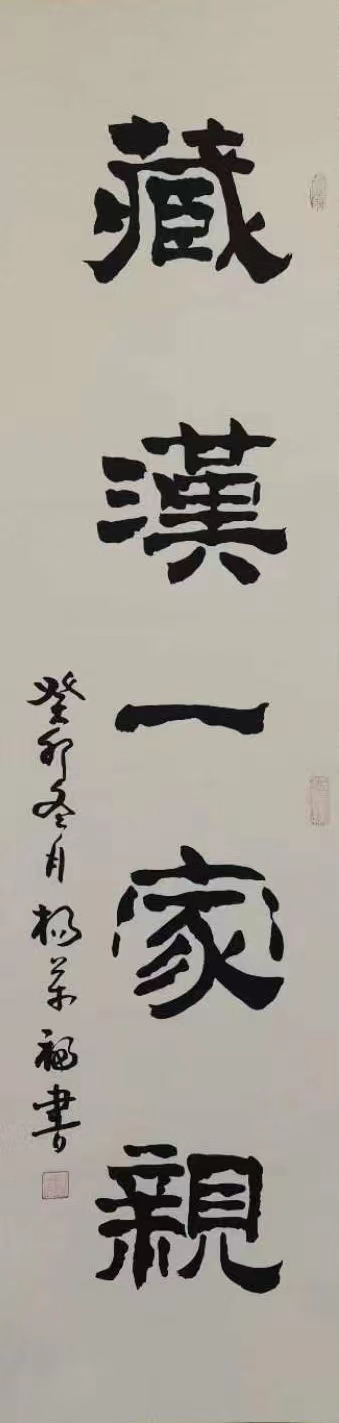 藏漢一家親
癸卯冬月楊萬福書